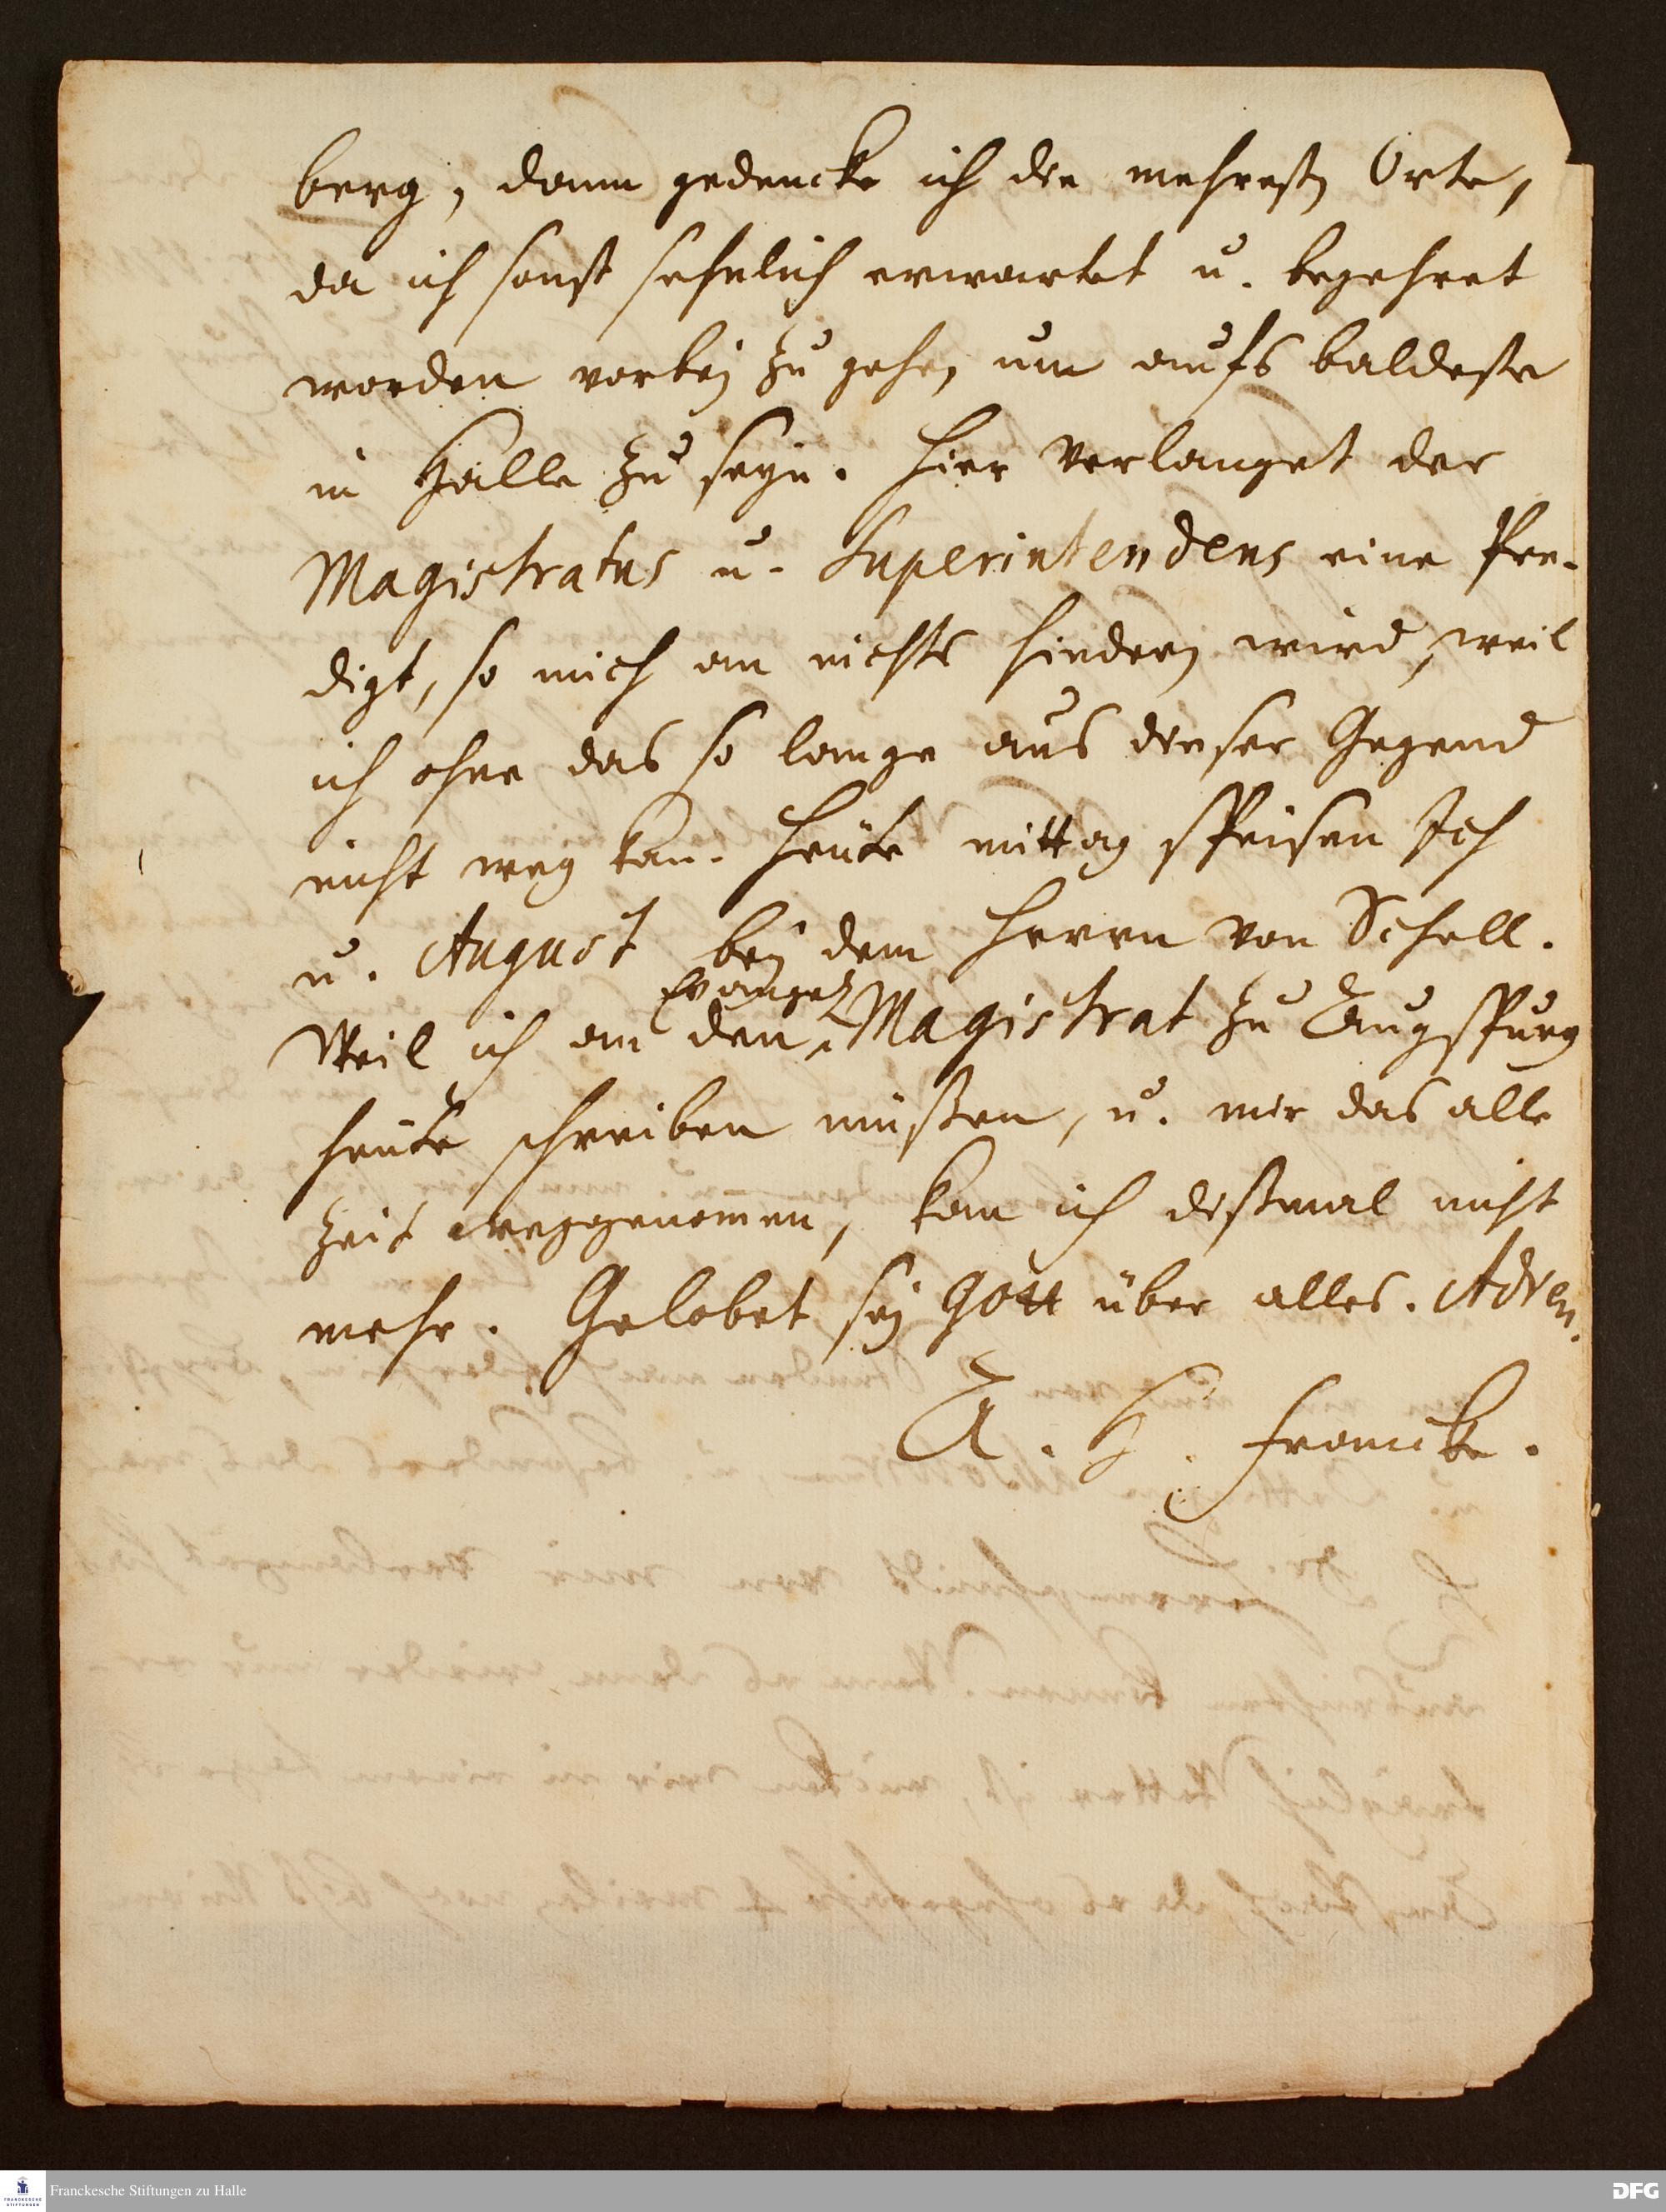 berg, dann gedencke ich die mehresten Orte,
da ich sonst sehnlich erwartet u. begehret
worden vorbey zu gehen um aufs baldeste
in Halle zu seyn. Hier verlanget der
Magistratus u. Superintendens eine Pre-
digt, so mich an nichts hindern wird, weil
ich ohne das so lange aus dieser Gegend
nicht weg kan. Heute mittag speisen Ich
u. August bey dem Herrn von Schell.
Evangel.
Weil ich an den Magistrat zu Augspurg
heute schreiben müßen, u. mir das alle
Zeit weggenommen, kan ich dißmal nicht
mehr. Gelobet sey Gott über alles. Amen.
A. H. Francke.
Franckesche Stiftungen zu Halle
FRANCKESCHE
STIFTUNGEN
DFG